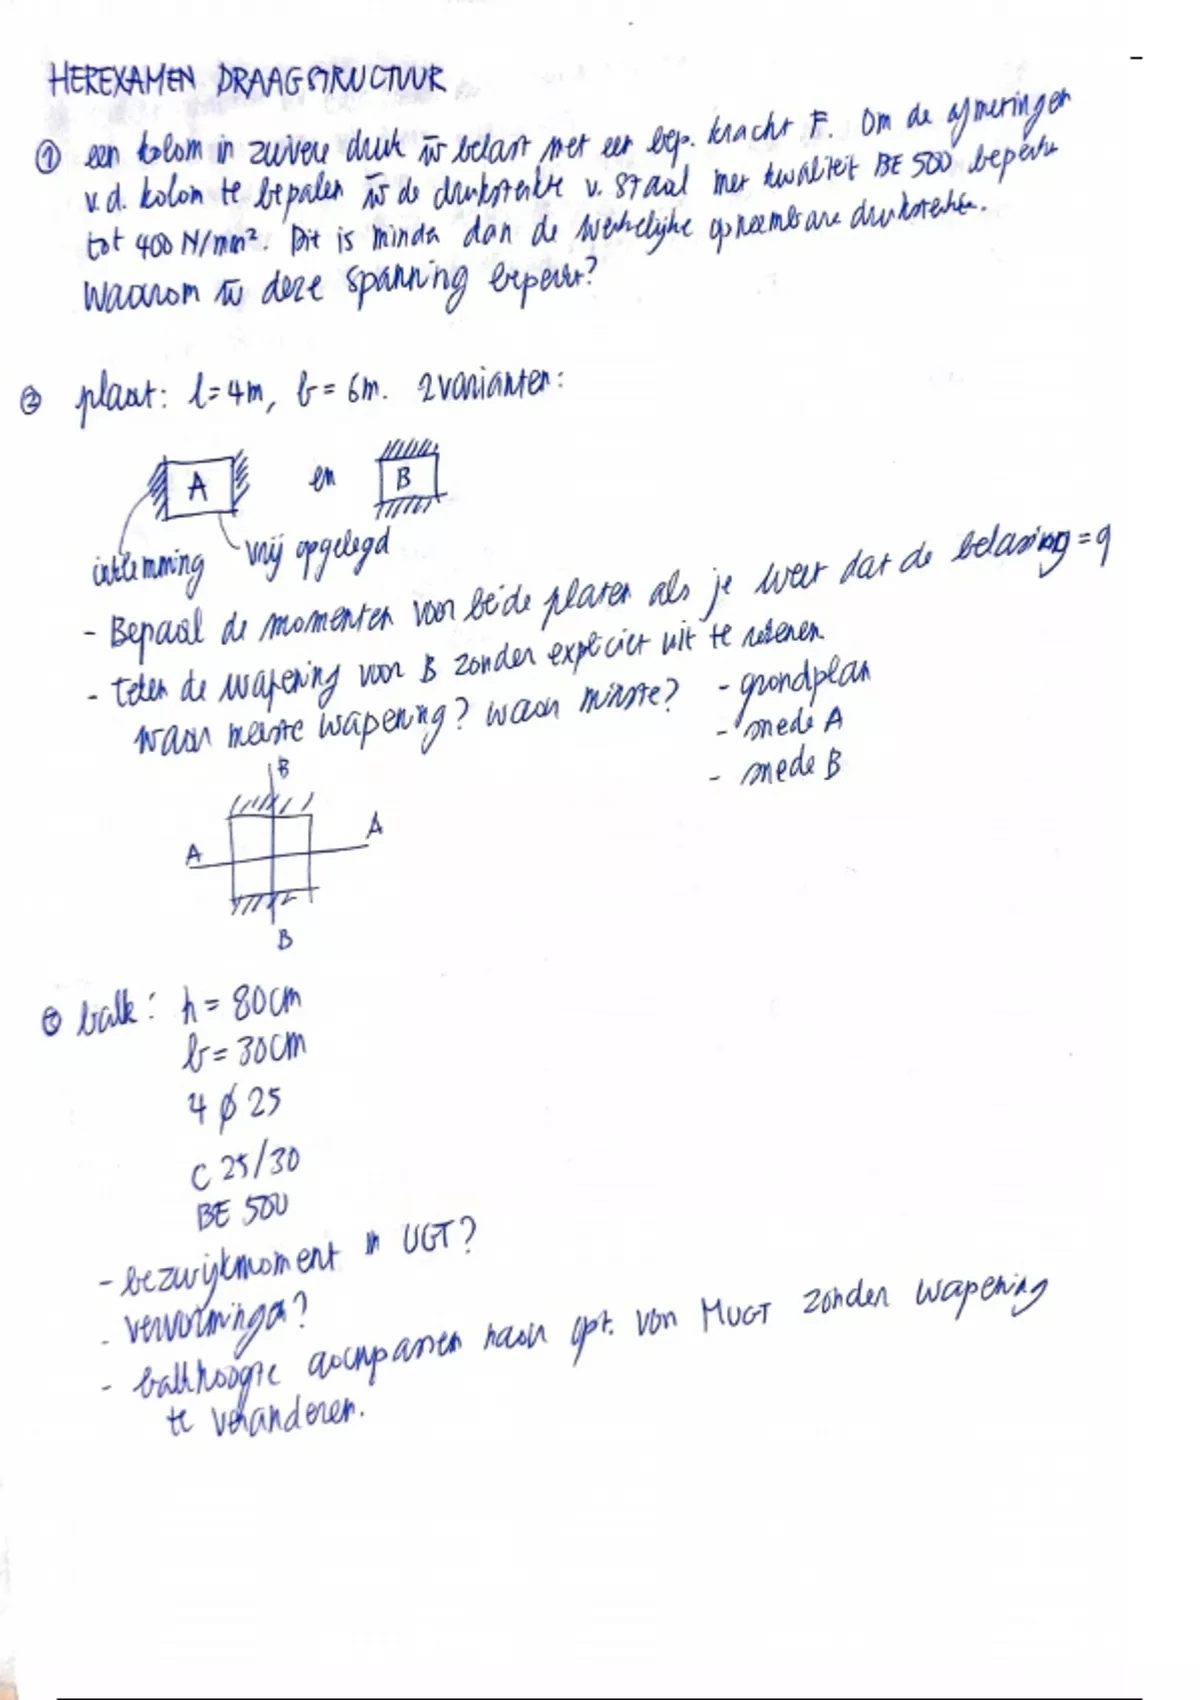 HEREXAMEN DRAAGSTRUCTUUR
① een kolom in zuivere druk w̄ belast met een bep. kracht F. Om de afmetingen
v.d. kolom te bepalen w̄ de druksterkte v. staal met kwaliteit BE 500 beperkt
tot 400 N/mm². Dit is minder dan de werkelijke opneembare druksterkte.
Waarom w̄ deze spanning beperkt?
② plaat: l = 4m, b = 6m. 2 varianten:
A en B
inklemming vrij opgelegd
- Bepaal de momenten voor beide platen als je weet dat de belasting = q
- Teken de wapening voor B zonder expliciet uit te rekenen.
waar meeste wapening? waar minste? - grondplan
- snede A
- snede B
B
A A
B
③ balk: h = 80cm
b = 30cm
4 ø 25
C 25/30
BE 500
- bezwijkmoment in UGT?
- vervormingen?
- balkhoogte aanpassen naar opt. van MUGT zonder wapening
te veranderen.